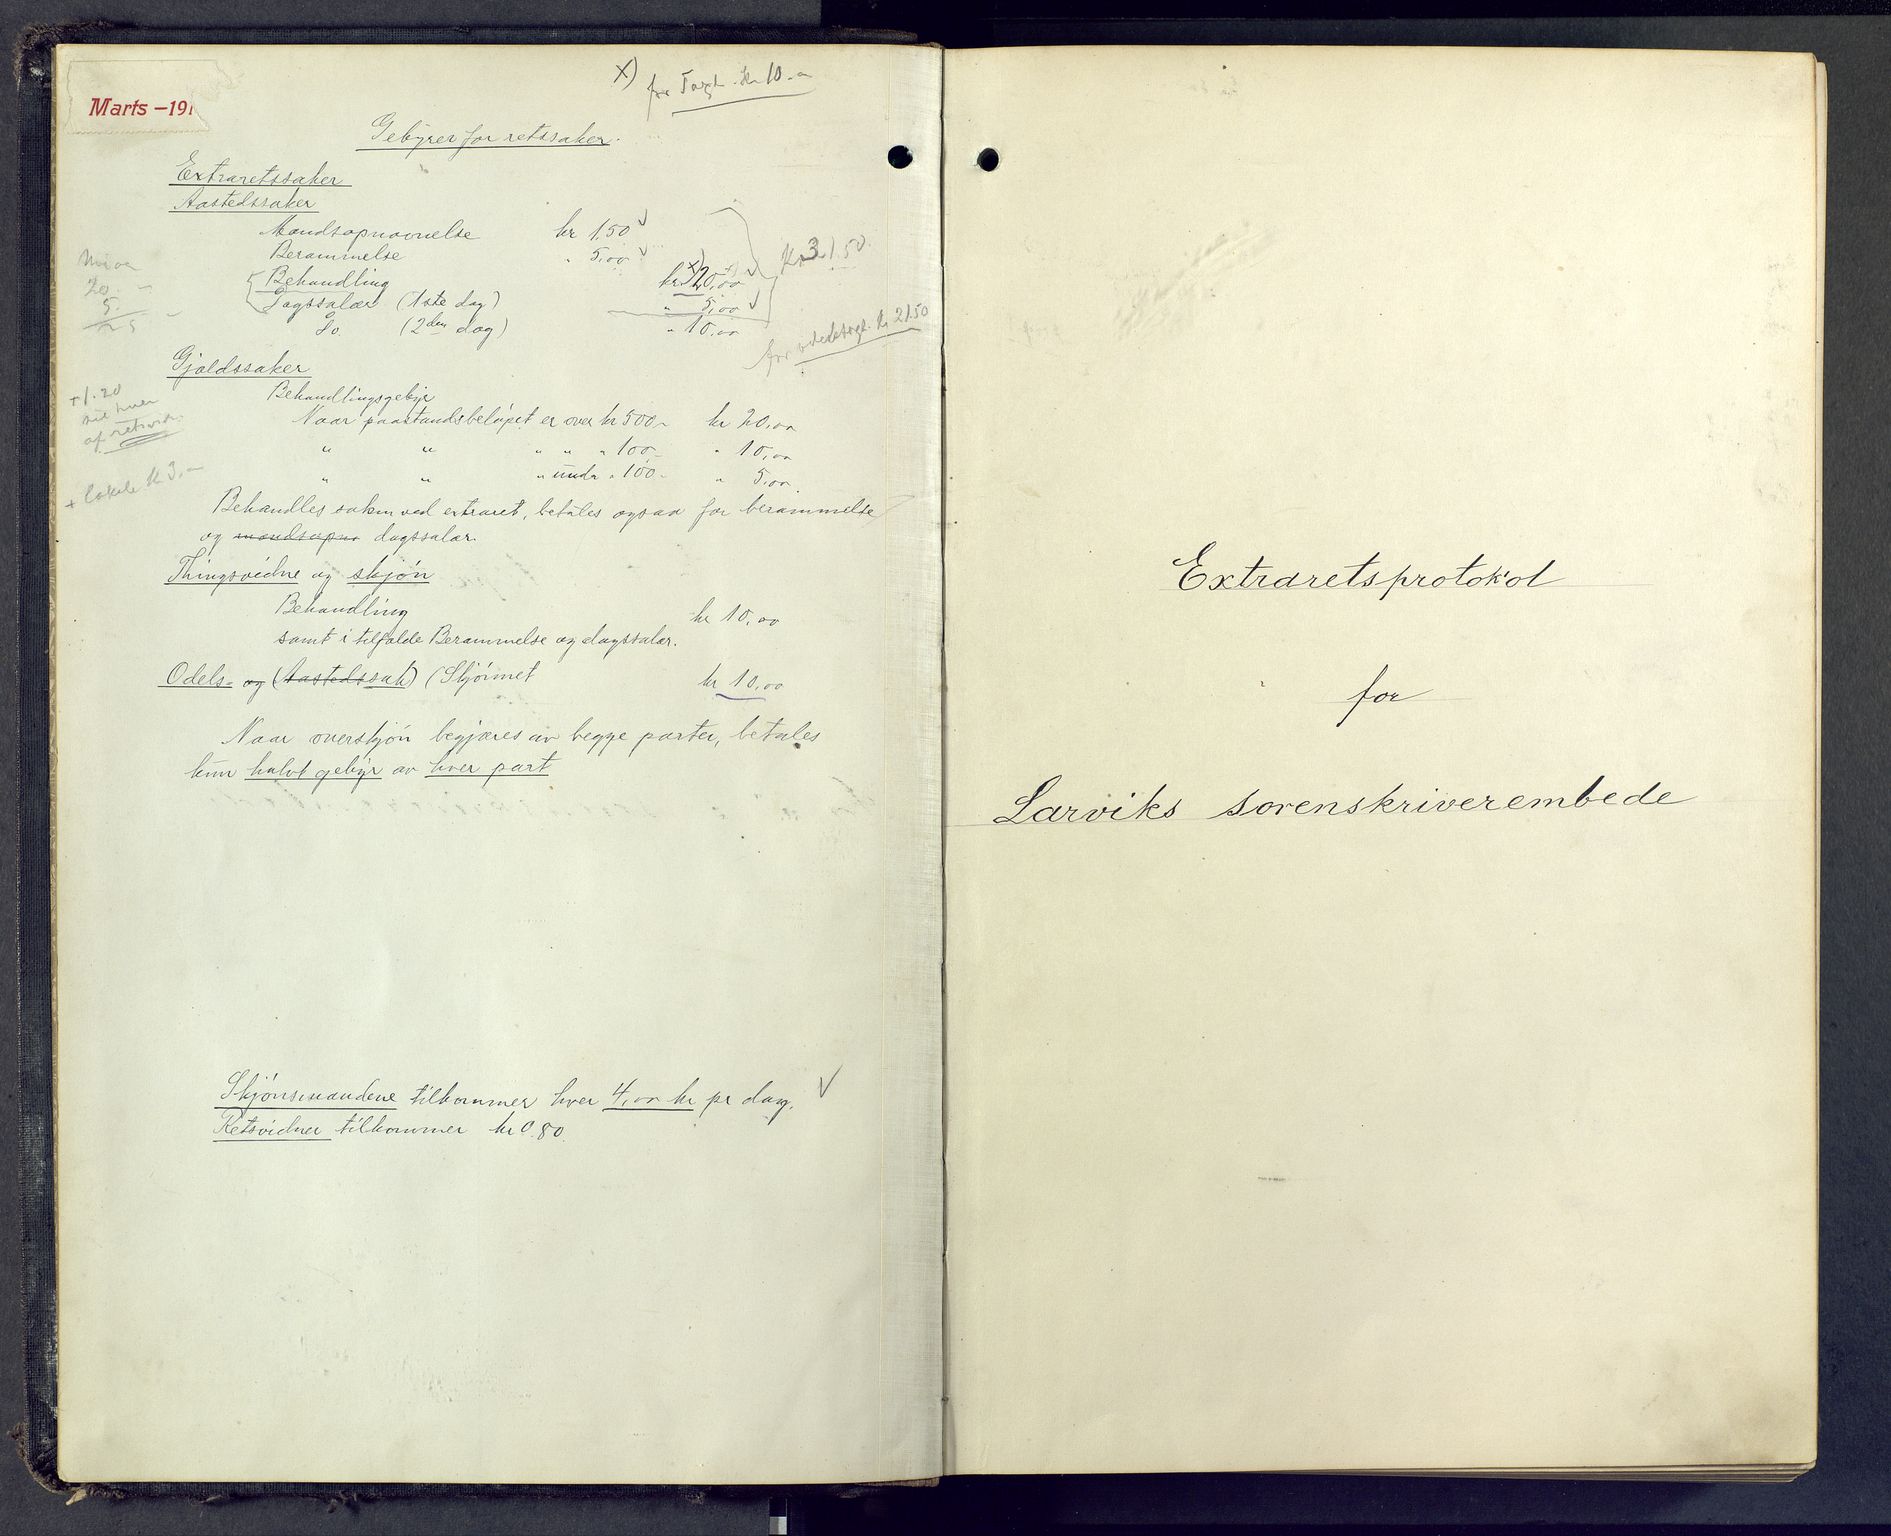 Marts - 191
X) for Torgl. Kr 10.-
Gebyrer for retssaker.
Extraretssaker
Aastedssaker
Mandsopnævnelse kr 1,50 √
Berammelse " 5,00 √
Behandling kr X) 20,00
Dagssalær (1ste dag) " 5,00 √
Do. (2den dag) " 10.00
Kr 31.50
20. -
5.
25 -
Kr 21.50
Gjældssaker
Behandlingsgebyr
Naar paastandsbeløpet er over kr 500,- kr 20,00
" " " " " 100,- " 10,00
" " " under " 100- " 5,00
+ 1.20
til hver
af retsvidn.
+ lokale kr 3,-
Behandles saken ved extraret, betales ogsaa for berammelse
og mandsopna dagssalær.
Thingsvidne og skjøn
Behandling kr 10,00
samt i tilfælde Berammelse og dagssalær.
Odels- og (Aastedssak) (Skjønnet kr 10,00
Naar overskjøn begjæres av begge parter, betales
kun halvt gebyr av hver part
Skjønsmændene tilkommer hver 4,00 kr pr dag. √
Retsvidner tilkommer kr 0.80.
Extraretsprotokol
for
Larviks sorenskriverembede